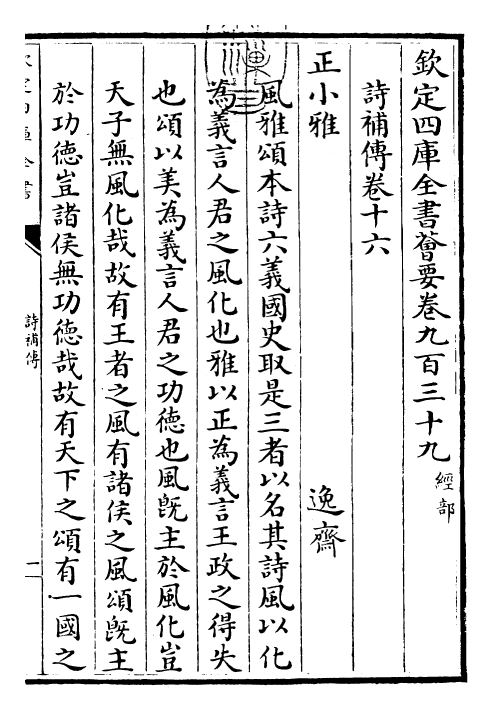 欽定四庫全書薈要卷九百三十九 經部
詩補傳卷十六
逸齋
正小雅
風雅頌本詩六義國史取是三者以名其詩風以化
為義言人君之風化也雅以正為義言王政之得失
也頌以美為義言人君之功德也風既主於風化豈
天子無風化哉故有王者之風有諸侯之風頌既主
於功德豈諸侯無功德哉故有天下之頌有一國之
詩補傳
一